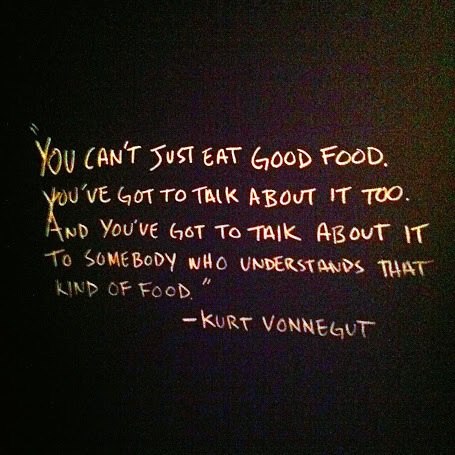 "YOU CAN'T JUST EAT GOOD FOOD.
YOU'VE GOT TO TALK ABOUT IT TOO.
AND YOU'VE GOT TO TALK ABOUT IT
TO SOMEBODY WHO UNDERSTANDS THAT
KIND OF FOOD."
—KURT VONNEGUT